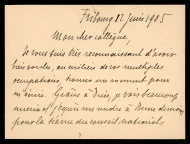 Fribourg 12 juin 1905
Mon cher collègue,
Je vous suis très reconnaissant d'avoir
bien voulu, au milieu de vos multiples
occupations trouver un moment pour
m'écrire. Grâce à Dieu, je vais beaucoup
mieux et j'espère me rendre à Berne demain
pour la séance du conseil national.